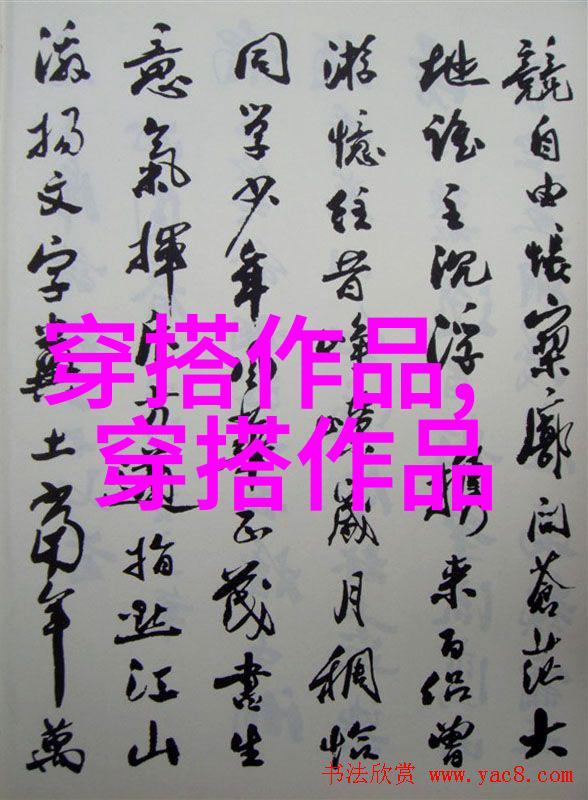 競自由悵寥廓问蒼茫大
地誰主沉浮携来百侣曾
游憶往昔峥嵘歲月稠恰
同学少年风華正茂書生
意氣揮斥方遒指點江山
激揚文字糞土當年萬
穿搭作品,
穿搭作品
书法欣赏 www.yac8.com